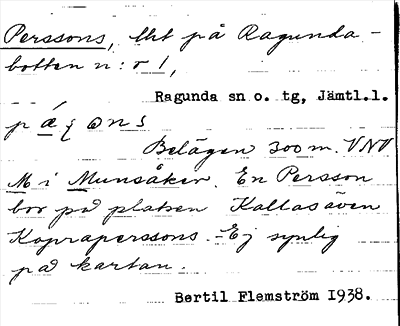 Perssons, lht på Ragunda-
botten n:r 1,
Ragunda sn o. tg, Jämtl.l.
Belägen 300 m. VNV
M i Munsåker. En Persson
bor på platsen Kallas även
Koprapersons. - Ej synlig
på kartan.
Bertil Flemström 1938.